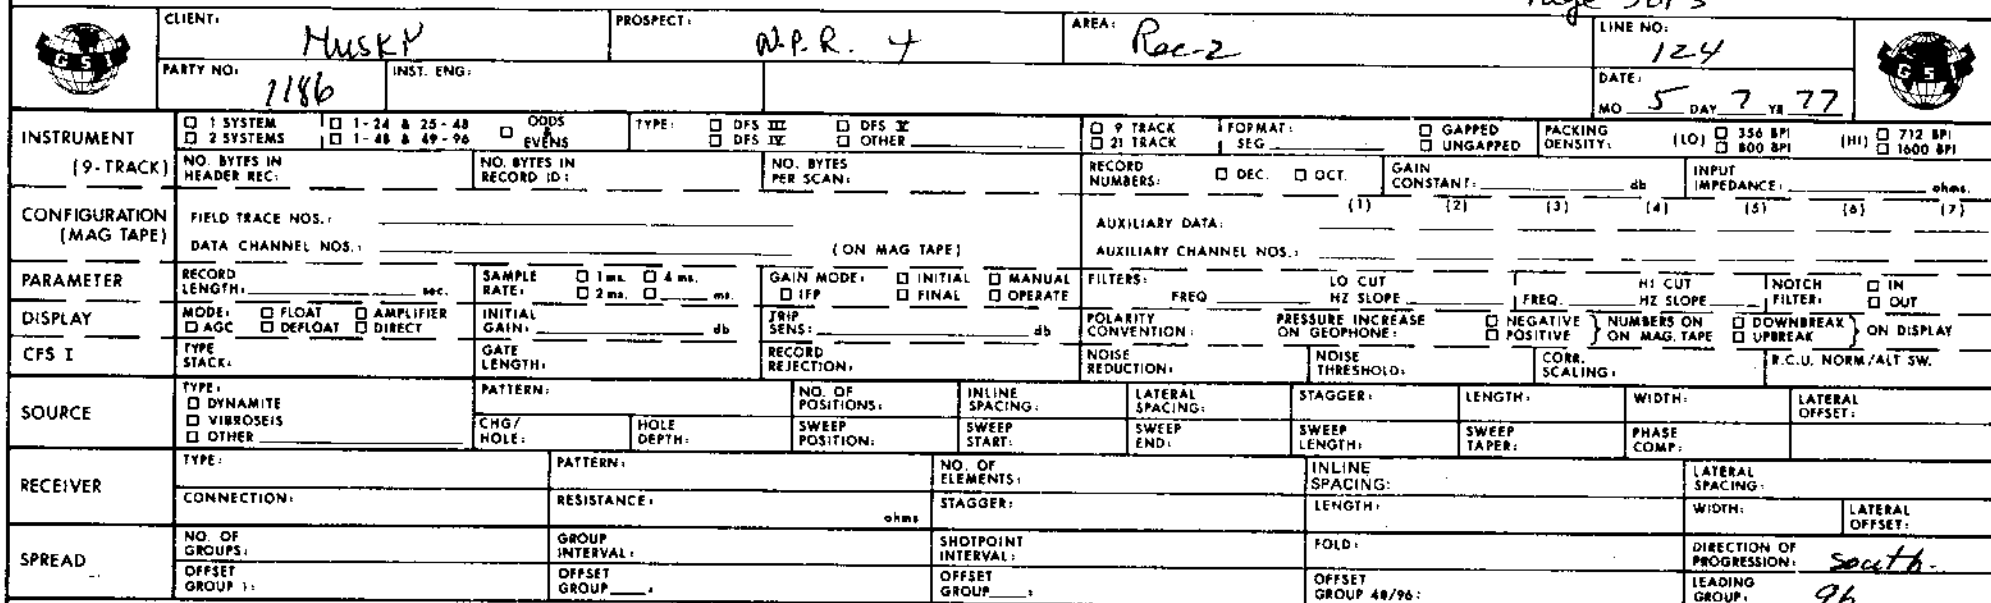 Page 3 of 3
CLIENT: Husky PROSPECT: N.P.R. 4 AREA: Rec-2 LINE NO: 124
GSI GSI
PARTY NO: 1186 INST. ENG: DATE: MO 5 DAY 7 YR 77
INSTRUMENT (9-TRACK)
☐ 1 SYSTEM ☐ 1-24 & 25-48 ☐ ODDS & EVENS TYPE: ☐ DFS III ☐ DFS V ☐ 9 TRACK FORMAT: ☐ GAPPED PACKING DENSITY: (LO) ☐ 356 BPI (HI) ☐ 712 BPI
☐ 2 SYSTEMS ☐ 1-48 & 49-96 ☐ DFS IV ☐ OTHER ☐ 21 TRACK SEG ☐ UNGAPPED ☐ 800 BPI ☐ 1600 BPI
NO. BYTES IN HEADER REC: NO. BYTES IN RECORD ID: NO. BYTES PER SCAN: RECORD NUMBERS: ☐ DEC. ☐ OCT. GAIN CONSTANT: db INPUT IMPEDANCE: ohms.
CONFIGURATION (MAG TAPE)
(1) (2) (3) (4) (5) (6) (7)
FIELD TRACE NOS.: AUXILIARY DATA:
DATA CHANNEL NOS.: (ON MAG TAPE) AUXILIARY CHANNEL NOS.:
PARAMETER RECORD LENGTH: sec. SAMPLE RATE: ☐ 1 ms. ☐ 4 ms. ☐ 2 ms. ☐ ms. GAIN MODE: ☐ INITIAL ☐ MANUAL ☐ IFP ☐ FINAL ☐ OPERATE FILTERS: LO CUT FREQ HZ SLOPE HI CUT FREQ. HZ SLOPE NOTCH FILTER: ☐ IN ☐ OUT
DISPLAY MODE: ☐ FLOAT ☐ AMPLIFIER ☐ AGC ☐ DEFLOAT ☐ DIRECT INITIAL GAIN: db TRIP SENS: db POLARITY CONVENTION: PRESSURE INCREASE ON GEOPHONE: ☐ NEGATIVE ☐ POSITIVE } NUMBERS ON MAG. TAPE ☐ DOWNBREAK ☐ UPBREAK } ON DISPLAY
CFS I TYPE STACK: GATE LENGTH: RECORD REJECTION: NOISE REDUCTION: NOISE THRESHOLD: CORR. SCALING: R.C.U. NORM/ALT SW.
SOURCE TYPE: ☐ DYNAMITE ☐ VIBROSEIS ☐ OTHER
PATTERN: NO. OF POSITIONS: INLINE SPACING: LATERAL SPACING: STAGGER: LENGTH: WIDTH: LATERAL OFFSET:
CHG/HOLE: HOLE DEPTH: SWEEP POSITION: SWEEP START: SWEEP END: SWEEP LENGTH: SWEEP TAPER: PHASE COMP:
RECEIVER TYPE: PATTERN: NO. OF ELEMENTS: INLINE SPACING: LATERAL SPACING:
CONNECTION: RESISTANCE: ohms STAGGER: LENGTH: WIDTH: LATERAL OFFSET:
SPREAD NO. OF GROUPS: GROUP INTERVAL: SHOTPOINT INTERVAL: FOLD: DIRECTION OF PROGRESSION: South-
OFFSET GROUP 1: OFFSET GROUP : OFFSET GROUP : OFFSET GROUP 48/96: LEADING GROUP: 96